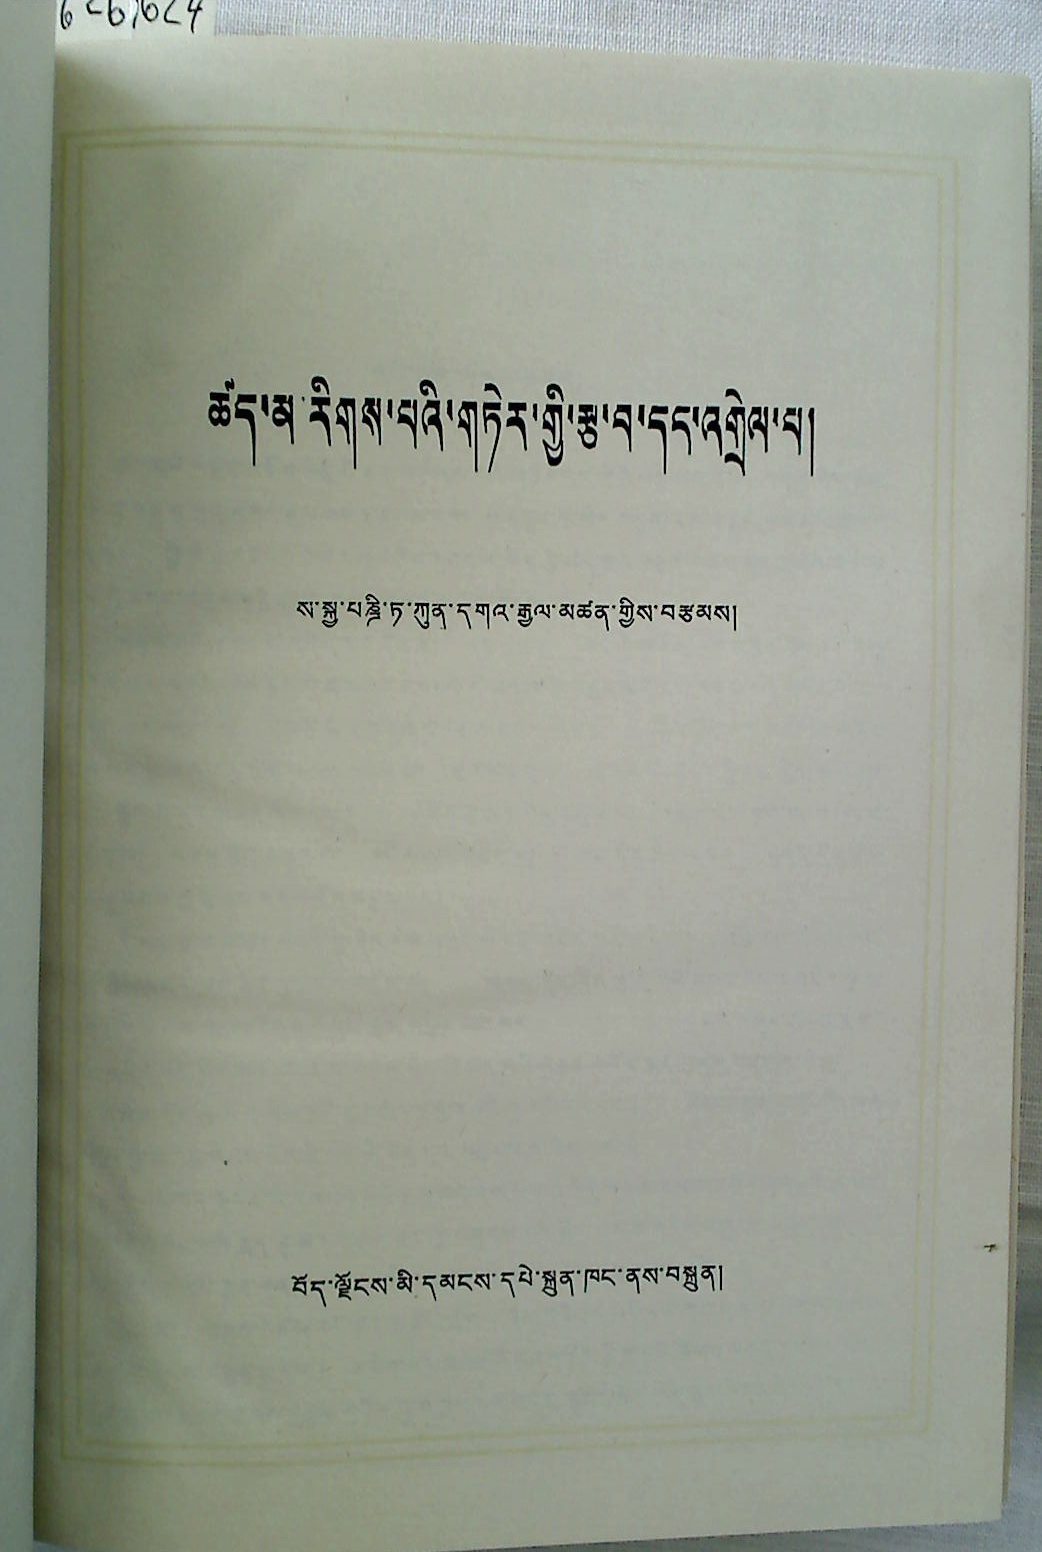 ཚད་མ་རིགས་པའི་གཏེར་གྱི་རྩ་བ་དང་འགྲེལ་པ།
ས་སྐྱ་པཎྜི་ཏ་ཀུན་དགའ་རྒྱལ་མཚན་གྱིས་བརྩམས།
བོད་ལྗོངས་མི་དམངས་དཔེ་སྐྲུན་ཁང་ནས་བསྐྲུན།